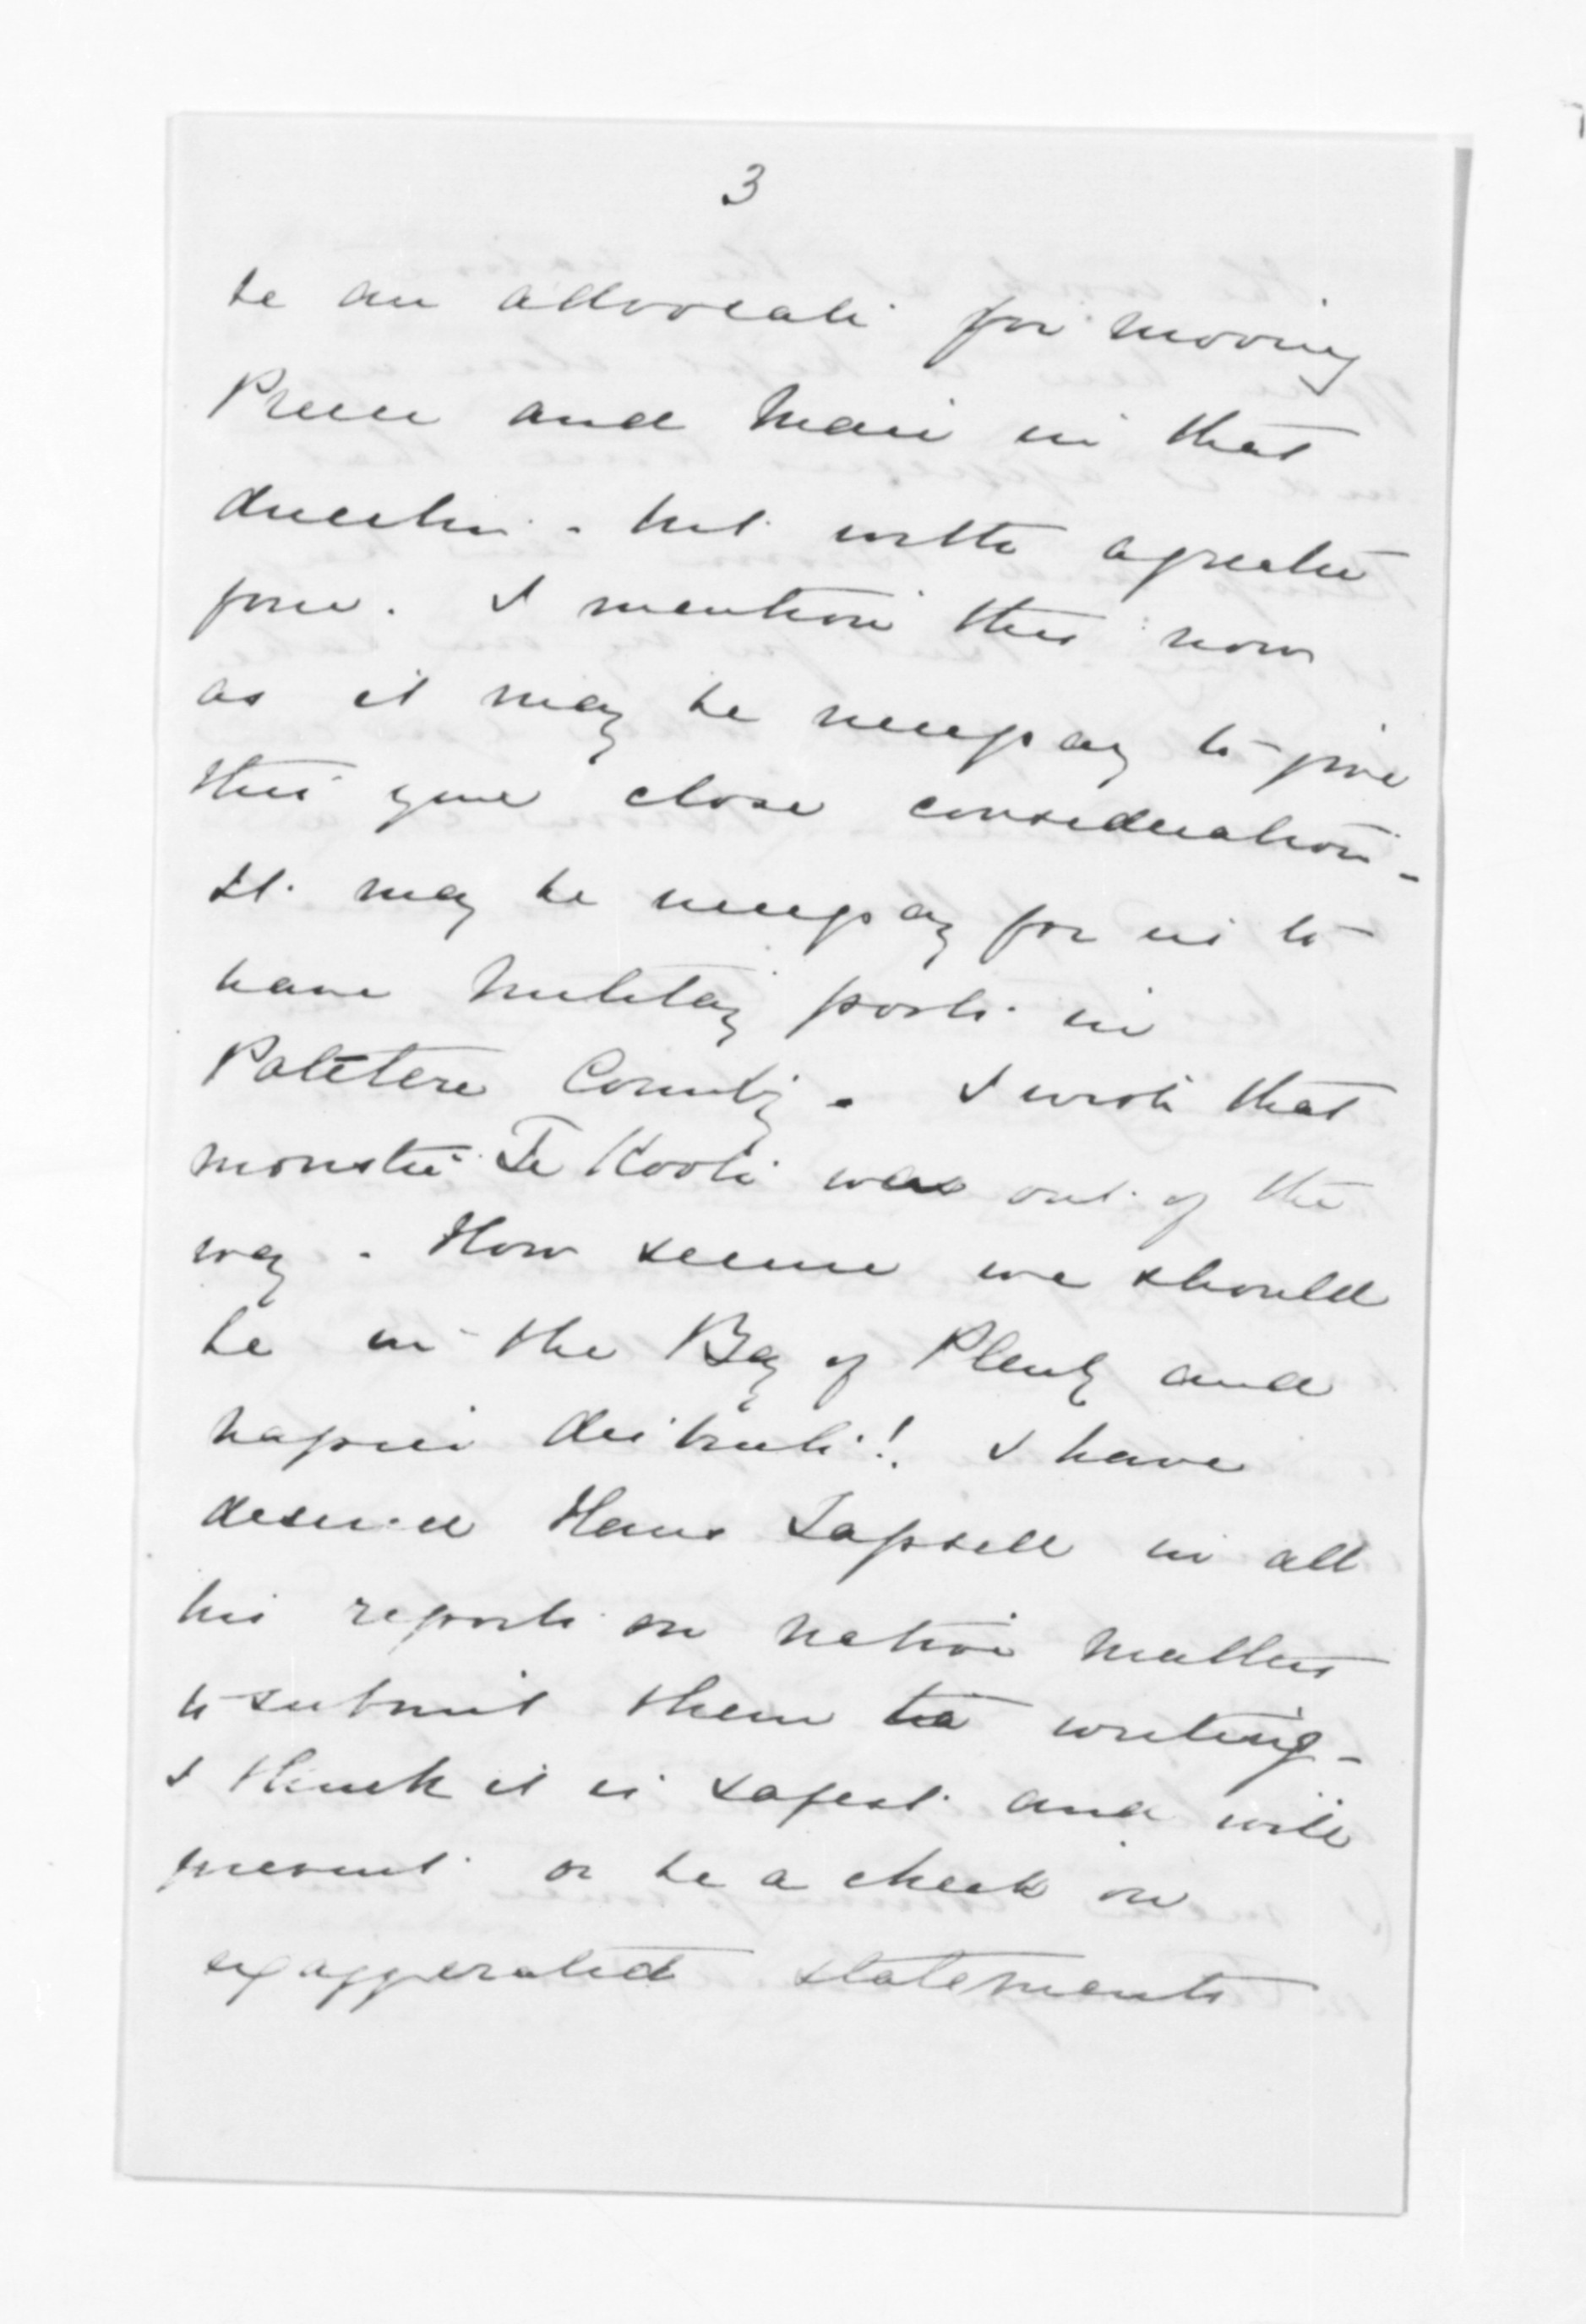 3
be an advocate for moving
Preece and Mair in that
direction - but with a greater
force. I mention this now
as it may be necessary to give
this your close consideration -
It may be necessary for us to
have Military posts in
Patetere Country. I wish that
monster Te Kooti was out of the
way - How secure we should
be in the Bay of Plenty and
Napier districts! I have
desired Hans Tapsell in all
his reports on native matters
to submit them in writing -
I think it is safest and will
prevent or be a check on
exaggerated statements